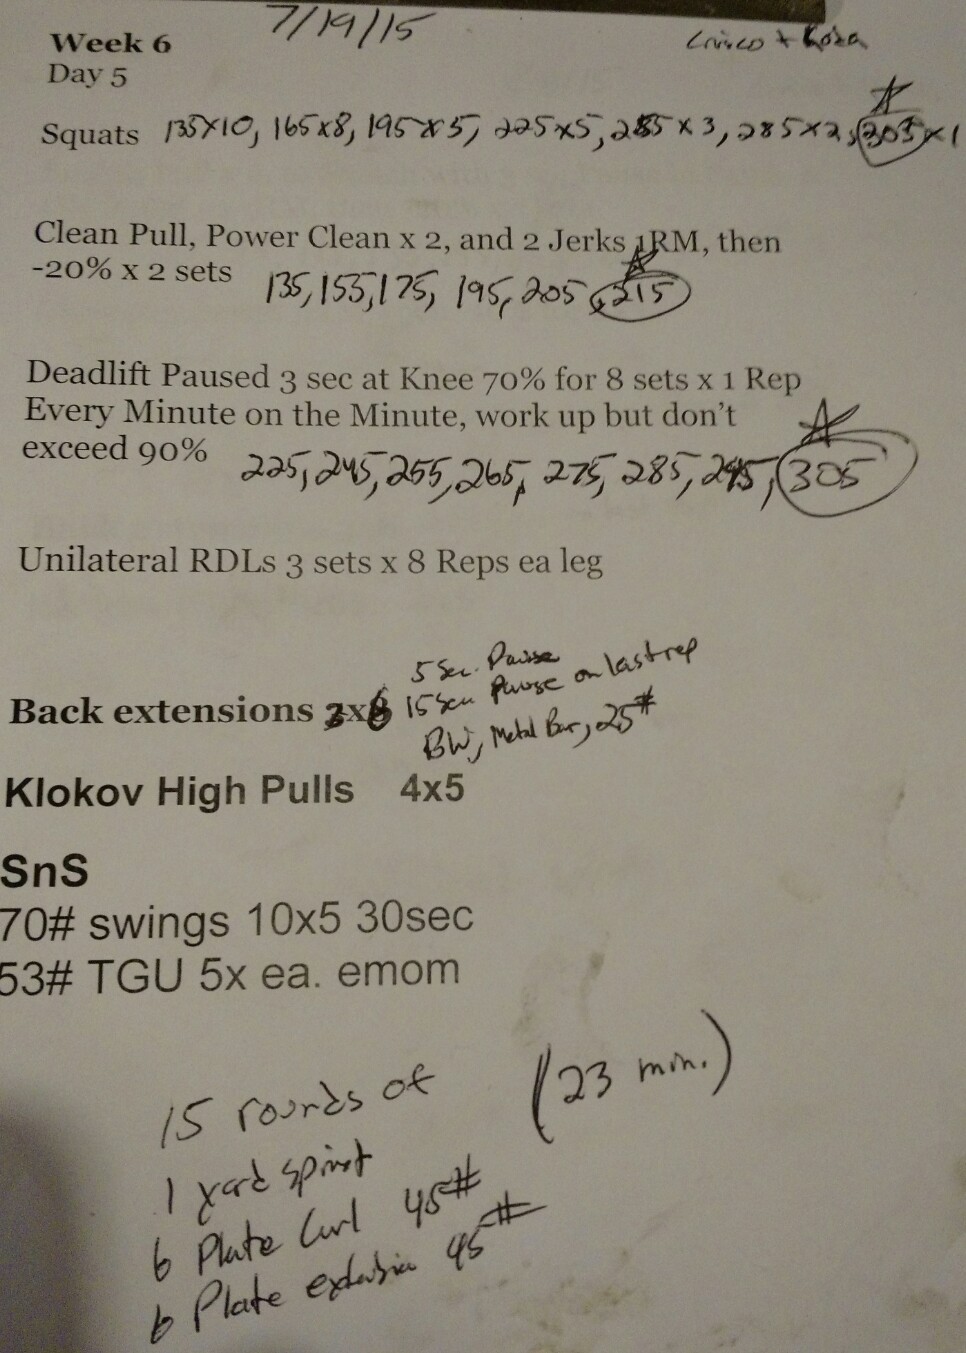 7/19/15
Week 6
Day 5
Squats 135x10, 165x8, 195x5, 225x5, 255x3, 285x2, 305x1
Clean Pull, Power Clean x 2, and 2 Jerks 1RM, then
-20% x 2 sets 135, 155, 175, 195, 205, 215
Deadlift Paused 3 sec at Knee 70% for 8 sets x 1 Rep
Every Minute on the Minute, work up but don't
exceed 90% 225, 245, 255, 265, 275, 285, 295, 305
Unilateral RDLs 3 sets x 8 Reps ea leg
5 Sec. Pause
Back extensions 3x6 15 Sec Pause on last rep
BW, Metal Bar, 25#
Klokov High Pulls 4x5
SnS
70# swings 10x5 30sec
53# TGU 5x ea. emom
15 rounds of (23 min.)
1 yard sprint
6 Plate Curl 45#
6 Plate extension 45#